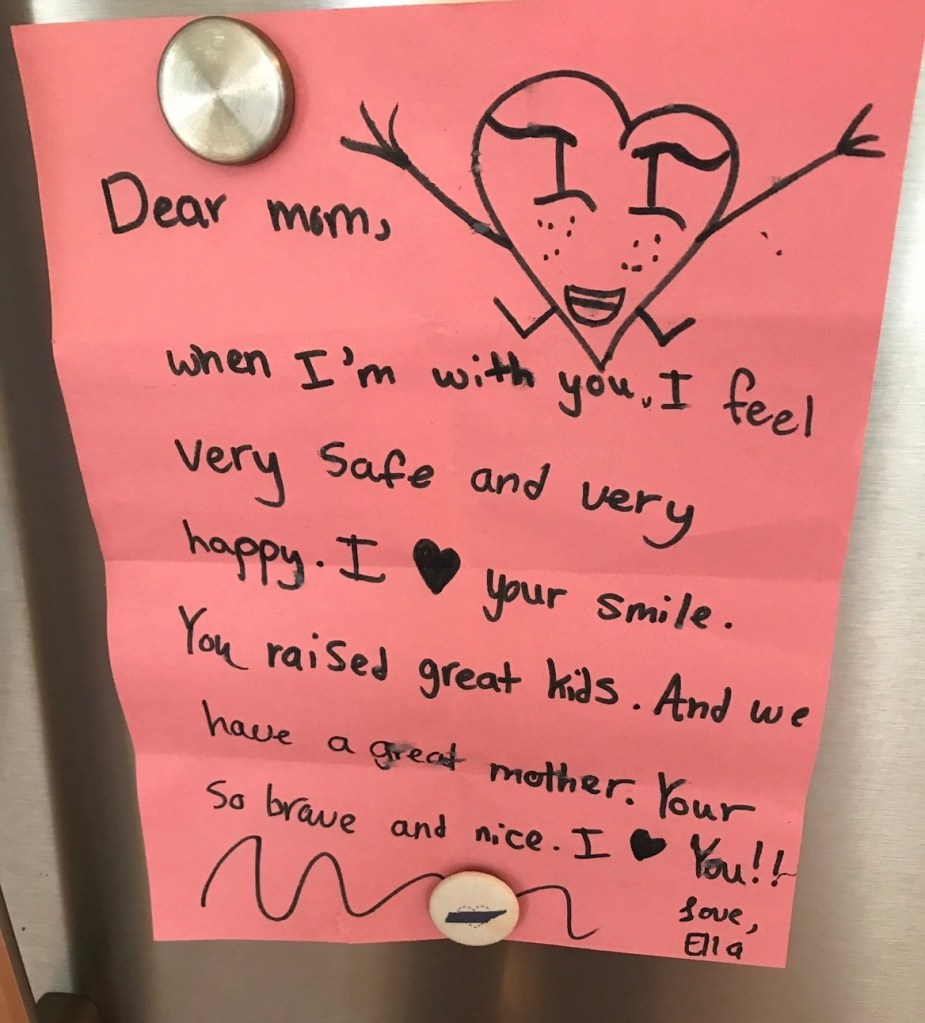 Dear mom,
when I'm with you, I feel
very safe and very
happy. I ♥ your smile.
You raised great kids. And we
have a great mother. Your
So brave and nice. I ♥ You!!
Love,
Ella